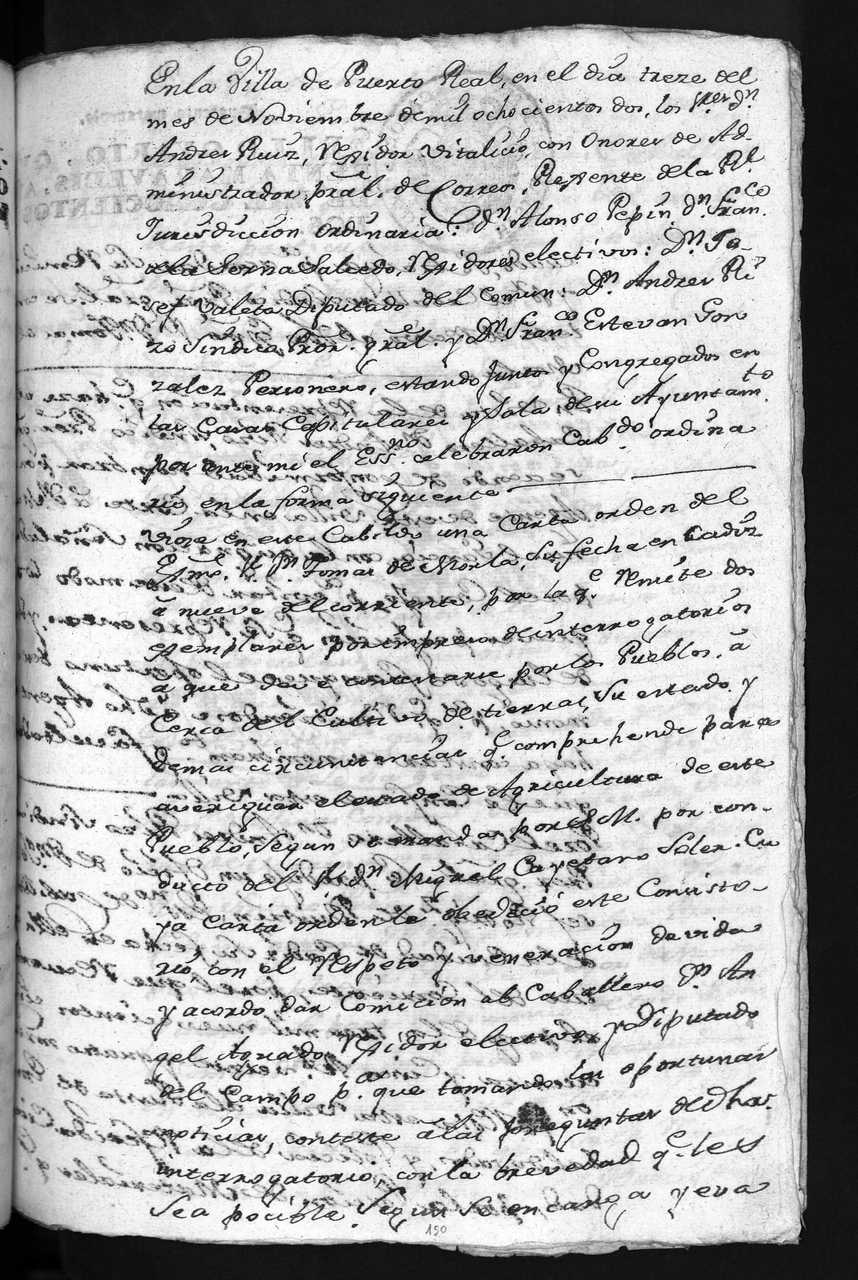 En la Villa de Puerto Real, en el dia treze del
mes de Noviembre de mil ochocientos dos, los Sres. Dn.
Andres Ruiz, Rexidor Vitalicio, con Onores de Ad-
ministrador pral. de Correos, Rexente de la Rl.
Jurisdiccion ordinaria: Dn. Alonso Pepin, Dn. Franco.
de la Serna Salcedo, Rexidores electivos: Dn. Jo-
sef Valeta Diputado del Comun: Dn. Andres Ri
zo Sindico Pror. gral. y Dn. Franco. Estevan Gon
zalez Personero, estando Juntos y Congregados en
las Casas Capitulares y Sala, de su Ayuntamto.
por ante mi el Essno. celebraron Cabdo. ordina
rio en la forma siguiente
Viose en este Cabildo una Carta orden del
Exmo. Sr. Dn. Tomas de Morla, su fecha en Cadiz
a nueve del corriente, por la qe. remite dos
exemplares impresos de interrogatorios
a que debe contextarse por los Pueblos, a
cerca del Cultivo de tierras, su estado y
demas circunstancias qe. comprehende para
averiguar el estado de Agricultura de este
Pueblo, segun se manda por S. M. por con-
ducto del Sr. Dn. Miguel Cayetano Soler. Cu
ya carta orden le obedeció este Consisto-
rio con el respeto y veneracion devida
y acordo, dar Comicion al Caballero Dn. An
gel Aguado, Rexidor electivo, y Diputado
del Campo pa. que tomando las oportunas
noticias, conteste a las preguntas de dhos.
interrogatorio, con la brevedad qe. les
sea pocible. Segun se encarga y eva
190